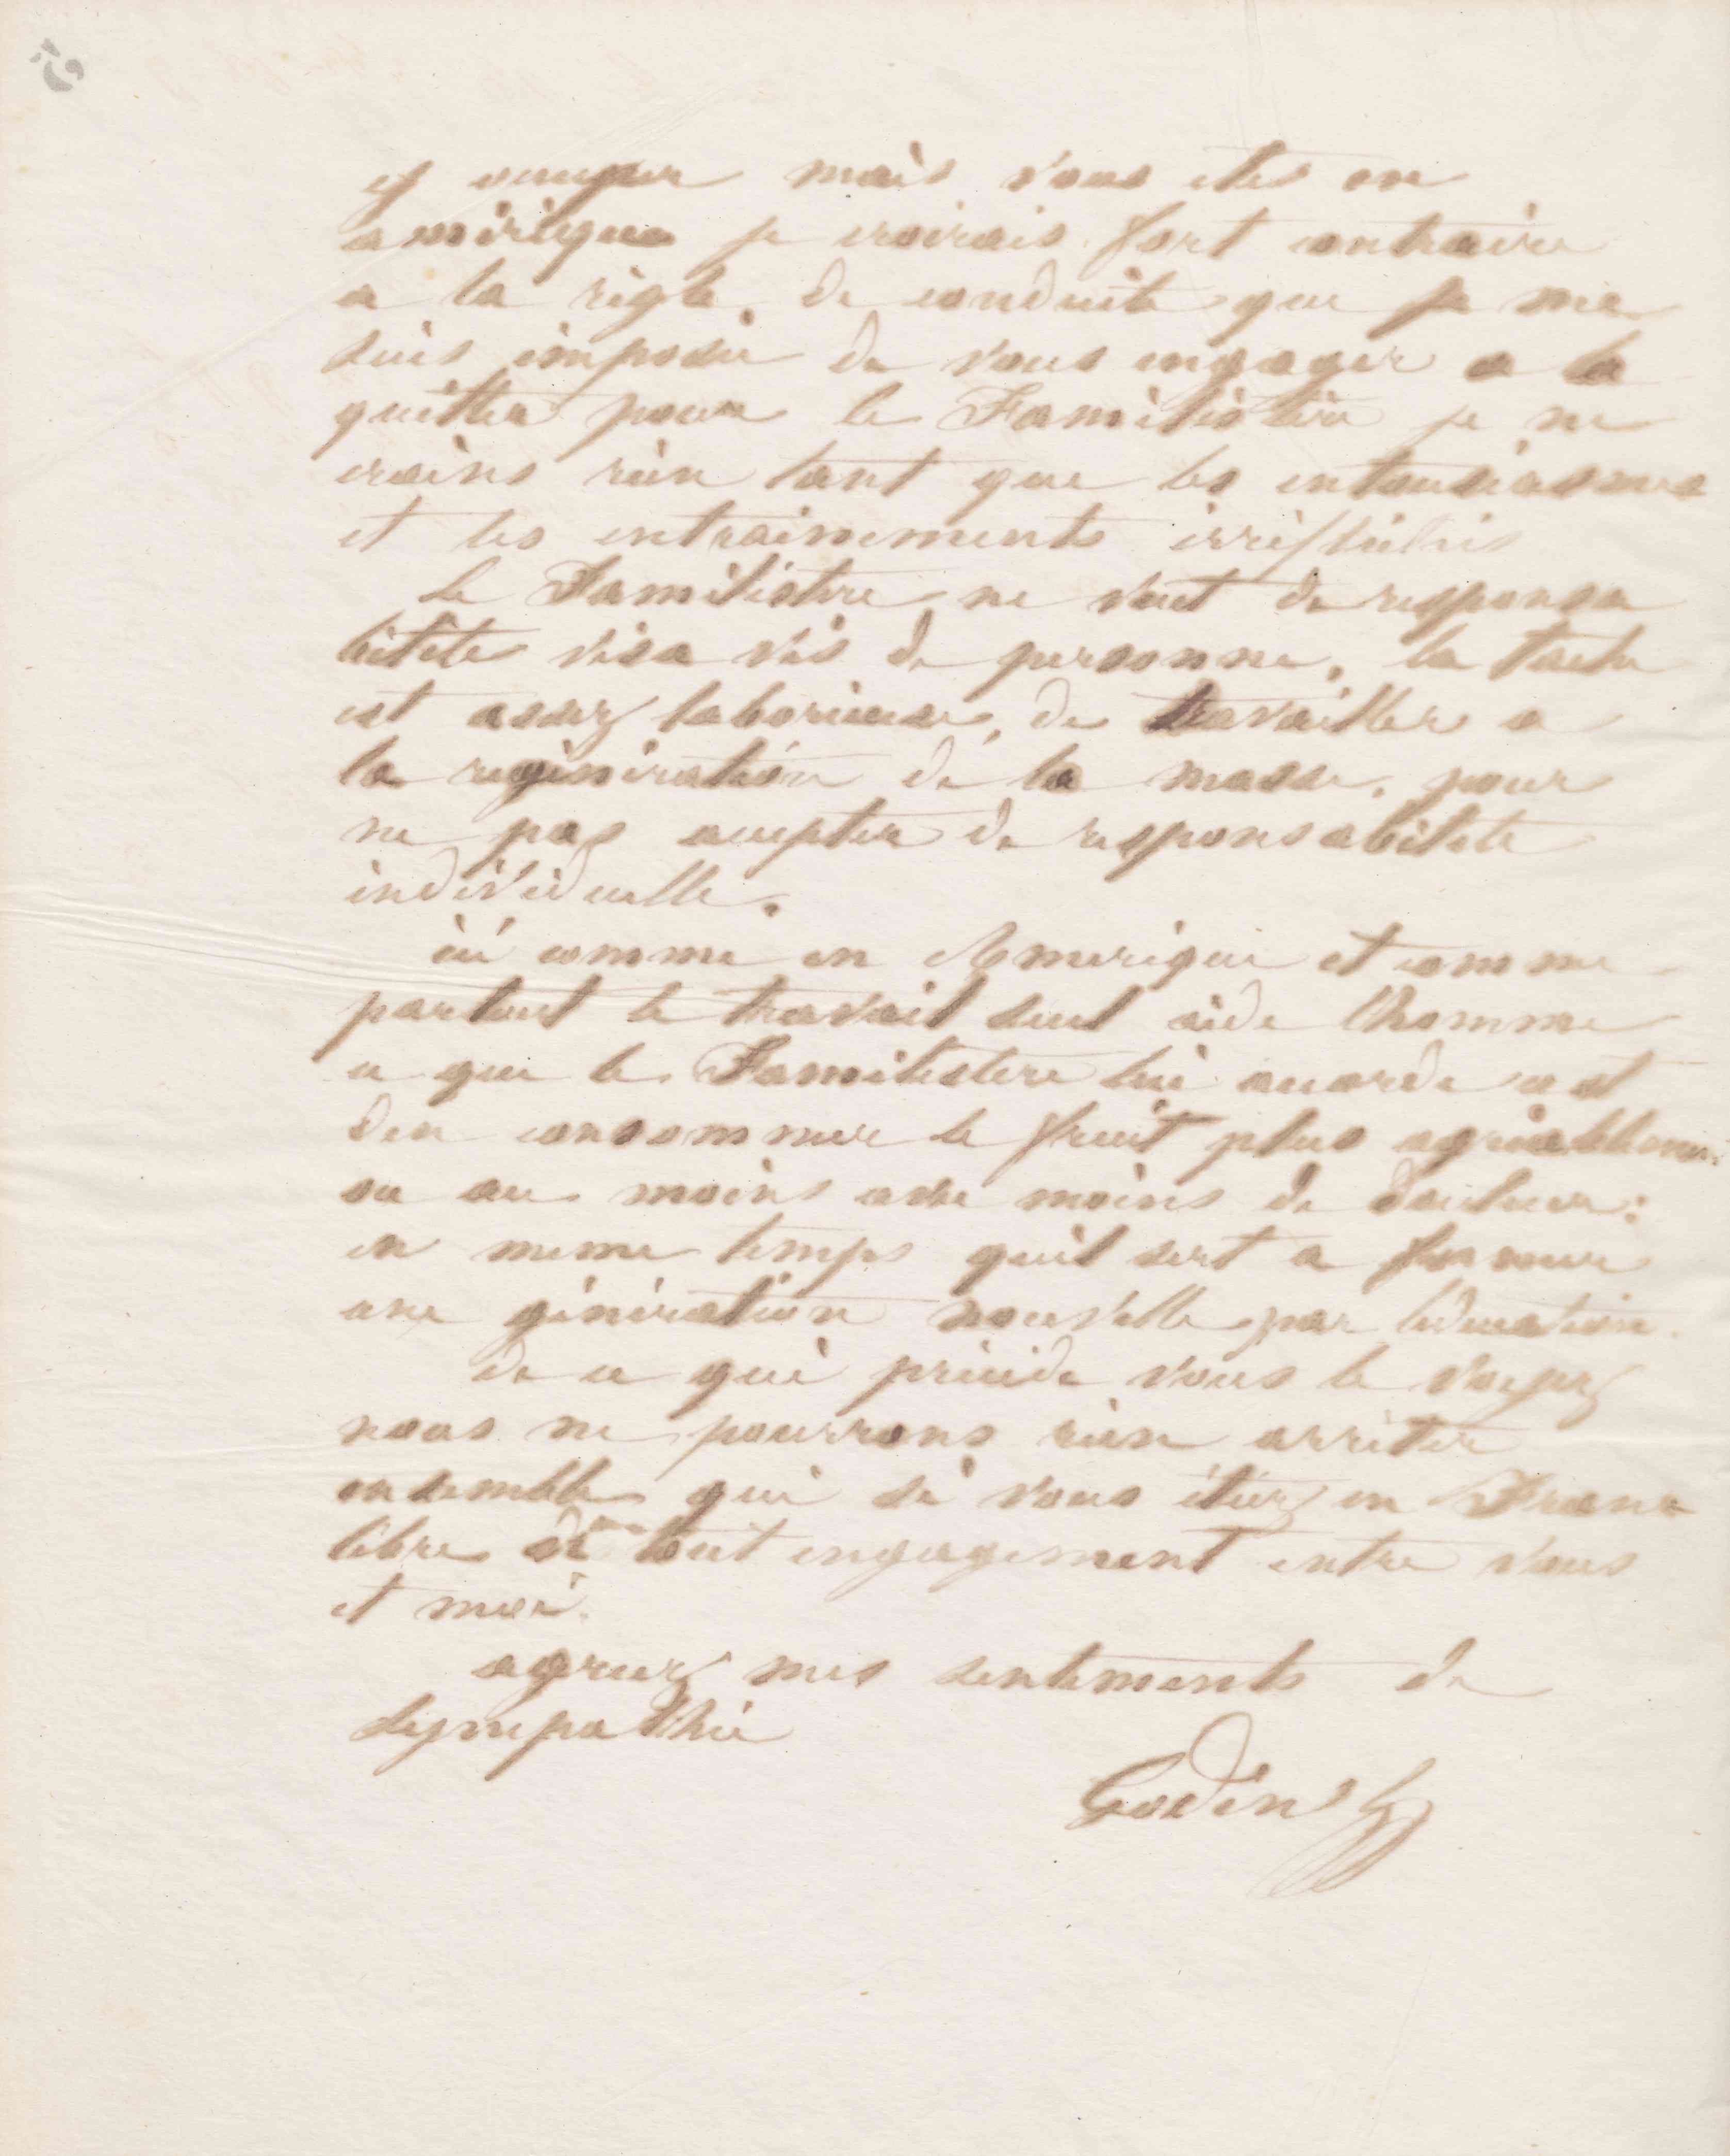 y occuper mais vous etes en
amérique je croirais fort contraire
a la règle de conduite que je me
suis imposée de vous engager a la
quitter pour le Familistère je ne
crains rien tant que les entousiasmes
et les entrainements irréfléchis
Le Familistère ne veut de responsa
bilité visa vis de personne, la tache
est assez laborieuse, de travailler a
la régénération de la masse, pour
ne pas accepter de responsabilité
individuelle.
ici comme en Amerique et comme
partout le travail seul aide l'homme
ce que le Familistere lui accorde cest
den consommer le fruit plus agréablemen
ou au moins avec moins de douleur:
en meme temps quil sert a former
une génération nouvelle par léducation.
de ce qui précède vous le voyez
nous ne pourrons rien arrêter
ensemble que si vous étiez en France
libre de tout engagement entre vous
et moi.
agreez mes sentiments de
sympathie
Godin